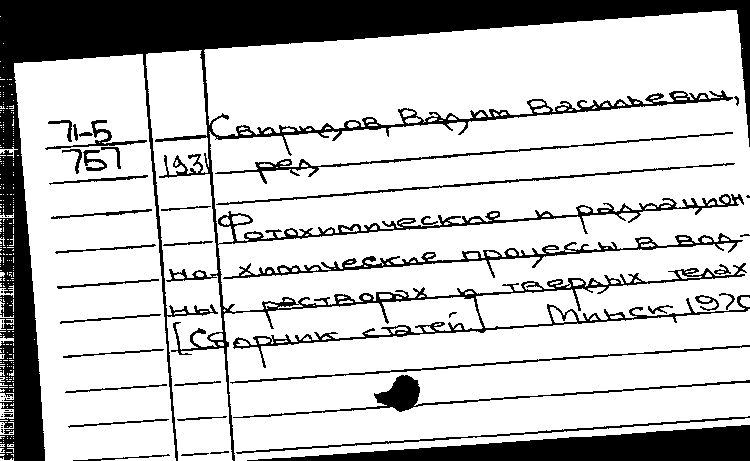 71-5
757
Свиридов, Вадим Васильевич,
1931
ред
Фотохимические и радиацион-
но-химические процессы в вод-
ных растворах и твердых телах
[Сборник статей]. Минск, 1970